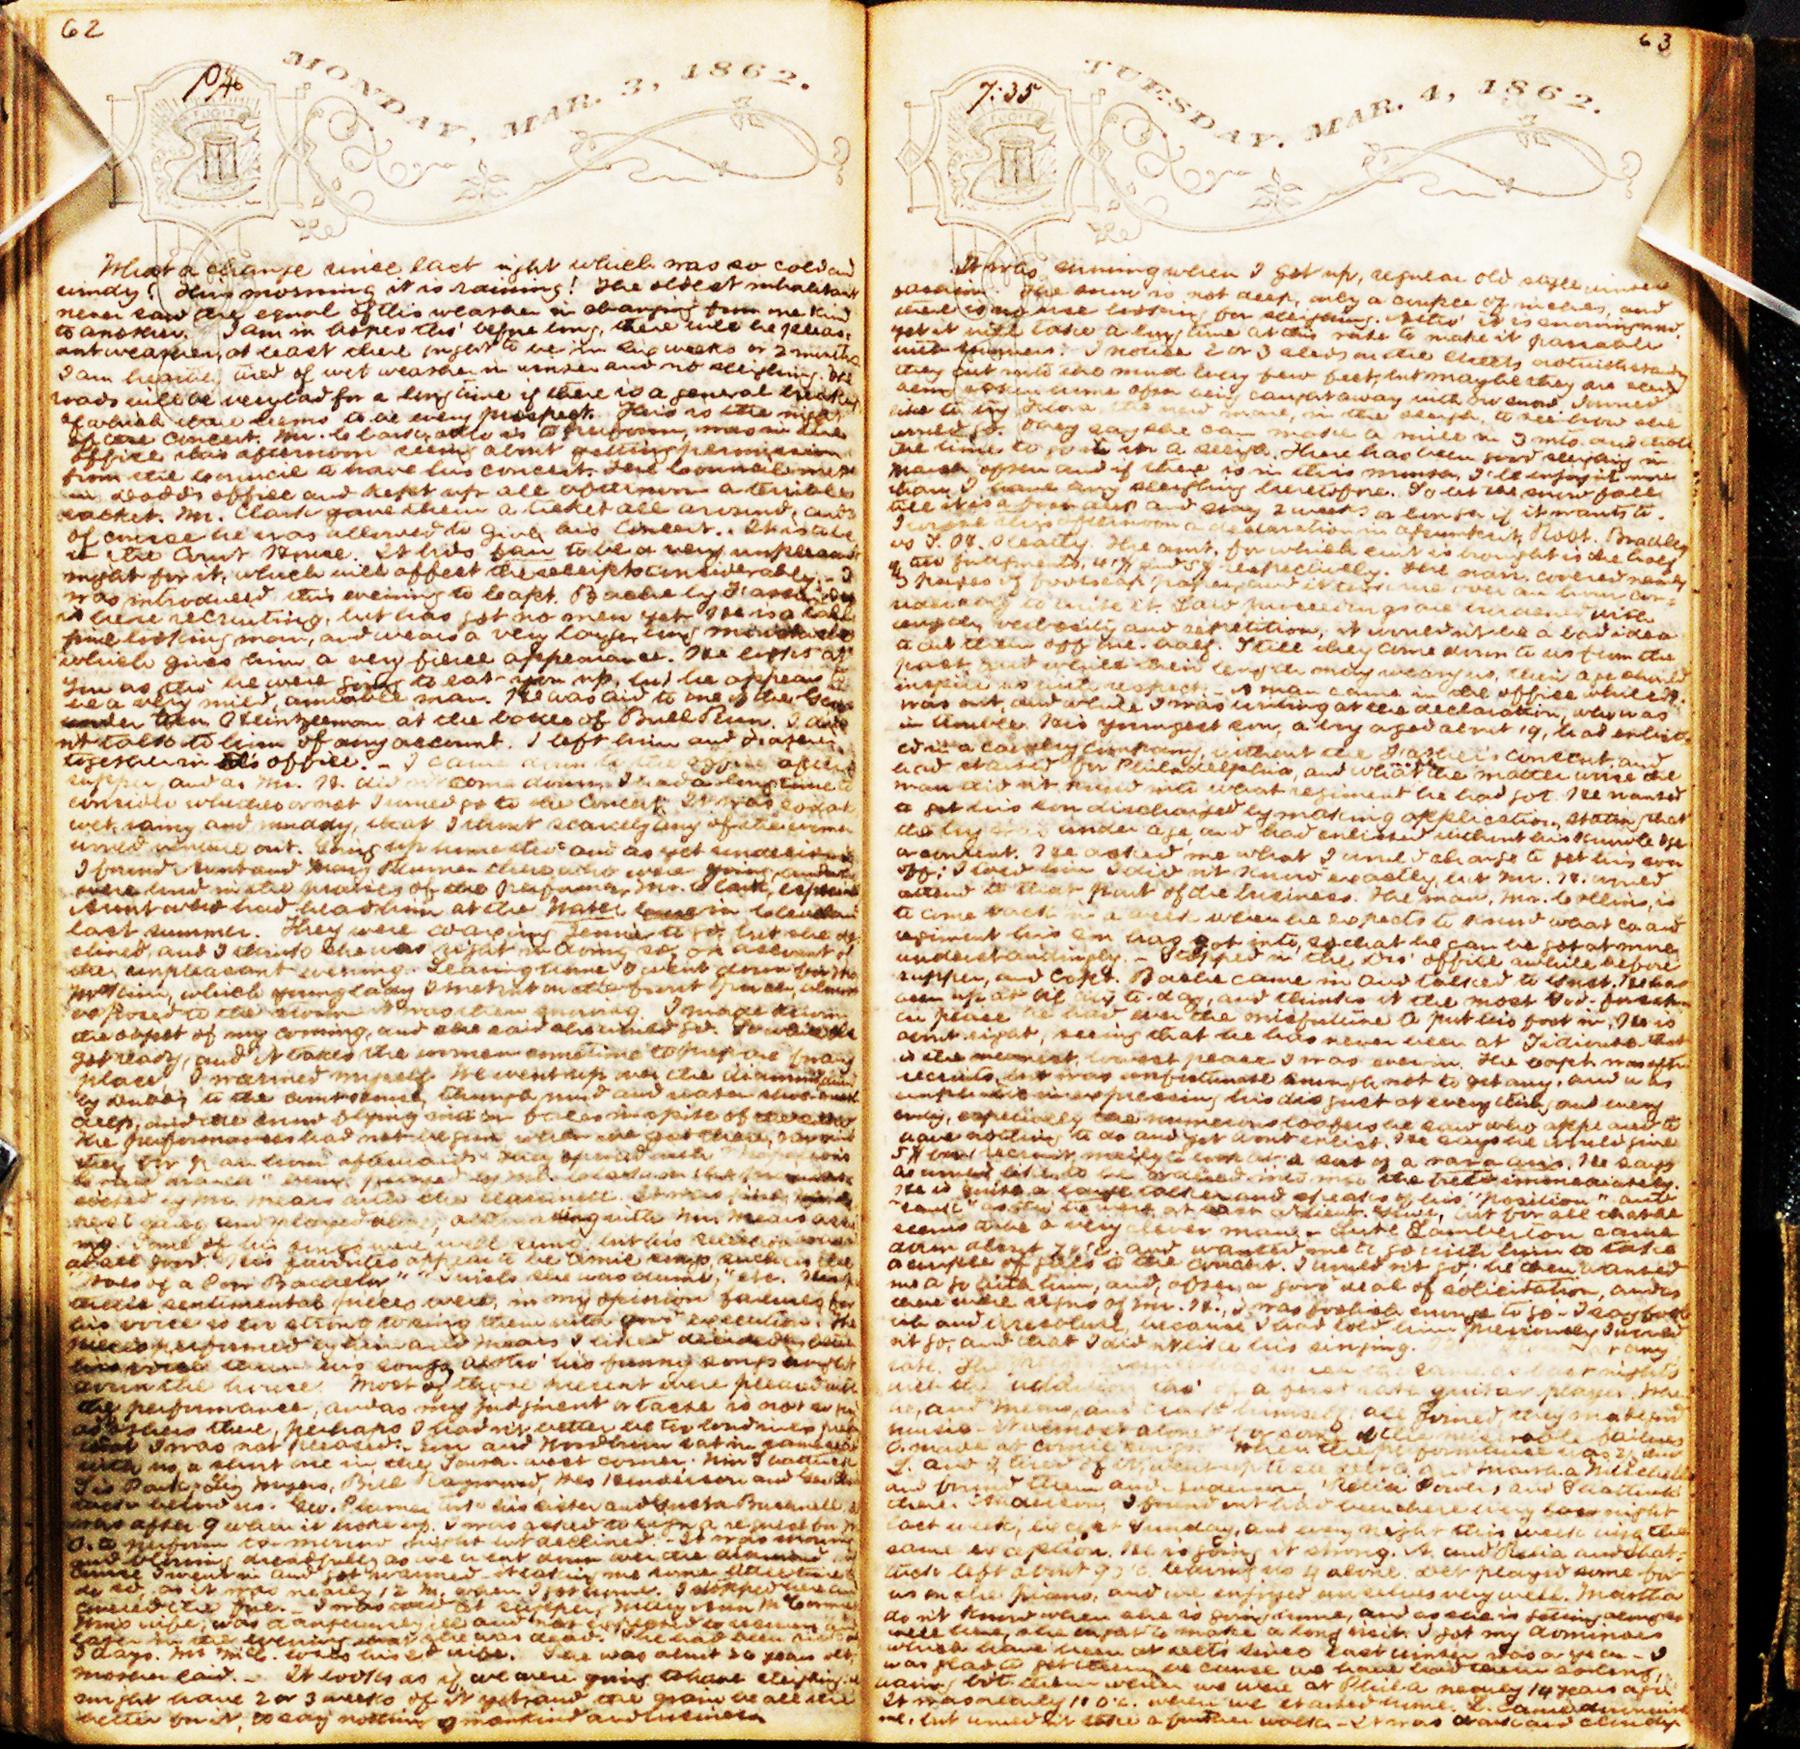 62
MONDAY, MAR. 3, 1862.
What a change since last night which was so cold and
windy! This morning it is raining! The oldest inhabitant
never saw the equal of this weather in changing from one kind
to another. I am in hopes tho' before long, there will be pleas-
ant weather, at least there ought to be in six weeks or 2 months
I am heartily tired of wet weather in winter and no sleighing. The
roads will be very bad for a long time if there is a general break up
of which there seems to be every prospect. This is the night
of the Concert. Mr. Clark, who is to perform, was in the
office this afternoon seeing about getting permission
from the Council to have his concert. The Council met
in Dodd's office and kept up all afternoon a terrible
racket. Mr. Clark gave them a ticket all around, and
of course he was allowed to give his Concert. It is to be
in the Court House. It bids fair to be a very unpleasant
night for it, which will affect the receipts considerably. - I
was introduced this evening to Capt. Bache by
is here recruiting, but has got no men yet. He is a tall
fine looking man, and wears a very large, long moustache
which gives him a very fierce appearance. He looks at
you as tho' he were going to eat you up, but he appears to
be a very mild, amiable man. He was aid to one of the Gen's
under Heintzelman at the battle of Bull Run. I did
n't talk to him of any account. I left him and
together in his office. - I came down to the office after
supper, and as Mr. H. did n't come down, I had a long time to
consider whether or not I would go to the Concert. It was so
wet, rainy and muddy, that I thought scarcely any of the women
would venture out. Going up home tho' and as yet undecided
I found Aunt and Mary Plumer there who were going, and
were loud in the praises of the performer, Mr. Clark, especially
Aunt who had heard him at the Water in Cleveland
last summer. They were coaxing Jennie to go, but she de-
clined, and I think she was right in doing so, on account of
the unpleasant evening. Leaving home I went down for
which young lady I met out on the front porch, almost
exposed to the storm. It was then snowing. I made known
the object of my coming, and she said she would go. So while she
got ready, and it takes the women sometime to prepare for any
place, I warmed myself. We went up over the diamond and
to the court house, through mud and water
deep, and the snow flying into our faces in spite of the
The performances had not begun when we got there,
they for an hour afterwards. They opened with
by Mr. Means
rest
with Mr. Means
Some of his songs were well sung, but his selection was n't
at all good. His favorites appear to be comic songs such as the
"Woes of a Poor Bachelor" "I wish she was dumb," etc.
sentimental pieces were, in my opinion failures for
his voice is too strong to sing them with good execution. The
pieces performed by him and Means I liked decidedly better
than his songs, altho' his funny songs brought
down the house. Most of those present were pleased with
the performance, and as my judgment or taste is not as
as others there, perhaps I had n't better be too
that I was not pleased. - and sat in same seat
with us a short one in the South-west corner.
Bill Raymond, Wes Henderson and
back behind us. Geo. Plumer with his sister and Gusta Bucknell. It
was after 9 when it broke up. I was asked to sign a request for Mr.
C. to perform to-morrow night but declined. - It was snowing
and blowing dreadfully as we went down over the diamond.
I went in and got warmed - it taking me some little time to
do so, as it was nearly 12 M. when I got home. I stopped here and
covered the fire. - I was told at supper, Mary Ann McCormick
wife, was dangerously ill and not expected to recover and
later in the evening that she was dead. She had been sick
5 days. was his 2d wife. She was about 26 years old,
mother said. - It looks as if we were going to have sleighing.
might have 2 or 3 weeks of it yet, and the grain be all the
better for it, to say nothing of mankind and business.
63
7:35
TUESDAY, MAR. 4, 1862.
It was snowing when I got up, regular old style winter
fashion. The snow is not deep, only a couple of inches, and
there is no use looking for sleighing. Altho' it is snowing now
yet it will take a long time at this rate to make it passable
with runners. I notice 2 or 3 sleds on the streets notwithstanding
they cut into the mud every few feet, but maybe they are
some time often being caught away with no snow. I would
like to try Flora the new mare, in the sleigh, to see how she
would go. They say she can make a mile in 3 mts. and
the time to go it in a sleigh. There has been good sleighing in
March often and if there is in this month, I'll enjoy it more
than I have any sleighing heretofore. So let the snow fall
till it is a foot deep and stay 2 weeks or longer if it wants to.
I wrote this afternoon a declaration in assumpsit, Robt. Brackley
vs J. H. The amt. for which suit is brought is the half
of two judgments, respectively. The narr. covered nearly
3 pages of foolscap paper, and it took me over an hour con-
siderably to write it. Law proceedings are burdened with
length, verbosity and repetition, it would n't be a bad idea
to cut them off one-half. Still they come down to us from the
past, and while their length may weary us, their age should
inspire us with respect. - A man came in the office while H.
was out, and while I was writing at the declaration, who was
in trouble. His youngest son, a boy aged about 19, had enlist-
ed in a cavalry company, without the Father's consent, and
had started for Philadelphia, and what the matter worse the
man did n't know into what regiment he had got. He wanted
to get his son discharged by making application, stating that
the boy was under age, and had enlisted without his knowledge
or consent. He asked me what I would charge to get his son
off; I told him I did n't know exactly, but Mr. H. would
attend to that part of the business. The man, Mr. Collins, is
to come back in a week when he expects to know what co. and
regiment his son has got into, so that he can be got at more
understandingly. - Stopped in the Drs' office awhile before
supper, and Capt. Bache came in and talked to us. He has
been up at Oil City to-day, and thinks it the most God-forsaken
place he had ever the misfortune to put his foot in. He is
about right, seeing that he has never been at Tidioute. That
is the meanest, lowest place I was ever in. The Capt. was after
recruits, but was unfortunate enough not to get any, and was
emphatic in expressing his disgust at everything and every-
body, especially the numerous loafers he saw who appeared to
have nothing to do and yet wont enlist. He says he would give
recruit merely to look at a sort of a rara avis. He says
he would like to be ordered into the field immediately.
He is quite a large talker and speaks of his "position" and
"rank" as tho' he were at least a Lieut. Gen'l, but for all that he
seems to be a very clever man. - Luke Lamberton came
down about 7 o'c. and wanted me to go with him to take
a couple of gals to the concert. I would n't go; he then wanted
me to go with him, and, after a good deal of solicitation, and as
there were signs of Mr. H., I was foolish enough to go. I say fool-
ish and irresolute, because I had told him previously I would
n't go, and that I did n't like his singing. at any
rate. The same as last night's
with the addition tho' of a first rate guitar player. When
he, and Means, and Clark himself all joined, they made good
music. It almost atoned for some of the miserable failures
C. made at comic songs. When the performance was over
L. and I tired of it, went up to see and Martha Mitchell
and found them and Anderson, Relia Power, and
there. Anderson, I found out had been there every night
last week, except Sunday, and every night this week with the
same exception. He is going it strong. A. and Relia and Shat-
tuck left about 9 o'c. leaving us 4 alone. Let played some for
us on the piano, and we enjoyed ourselves very well. Martha
do n't know when she is going home, and as she is getting along so
well here, she ought to make a long visit. I got my dominoes
which have been at Let's since last winter was a year. - I
was glad to get them because we have had them so long,
having bot them when we were at Phila. nearly 14 years ago.
It was nearly 11 o'c. when we started home. L. came down with
me, but would n't take a further walk. - It was dark and cloudy